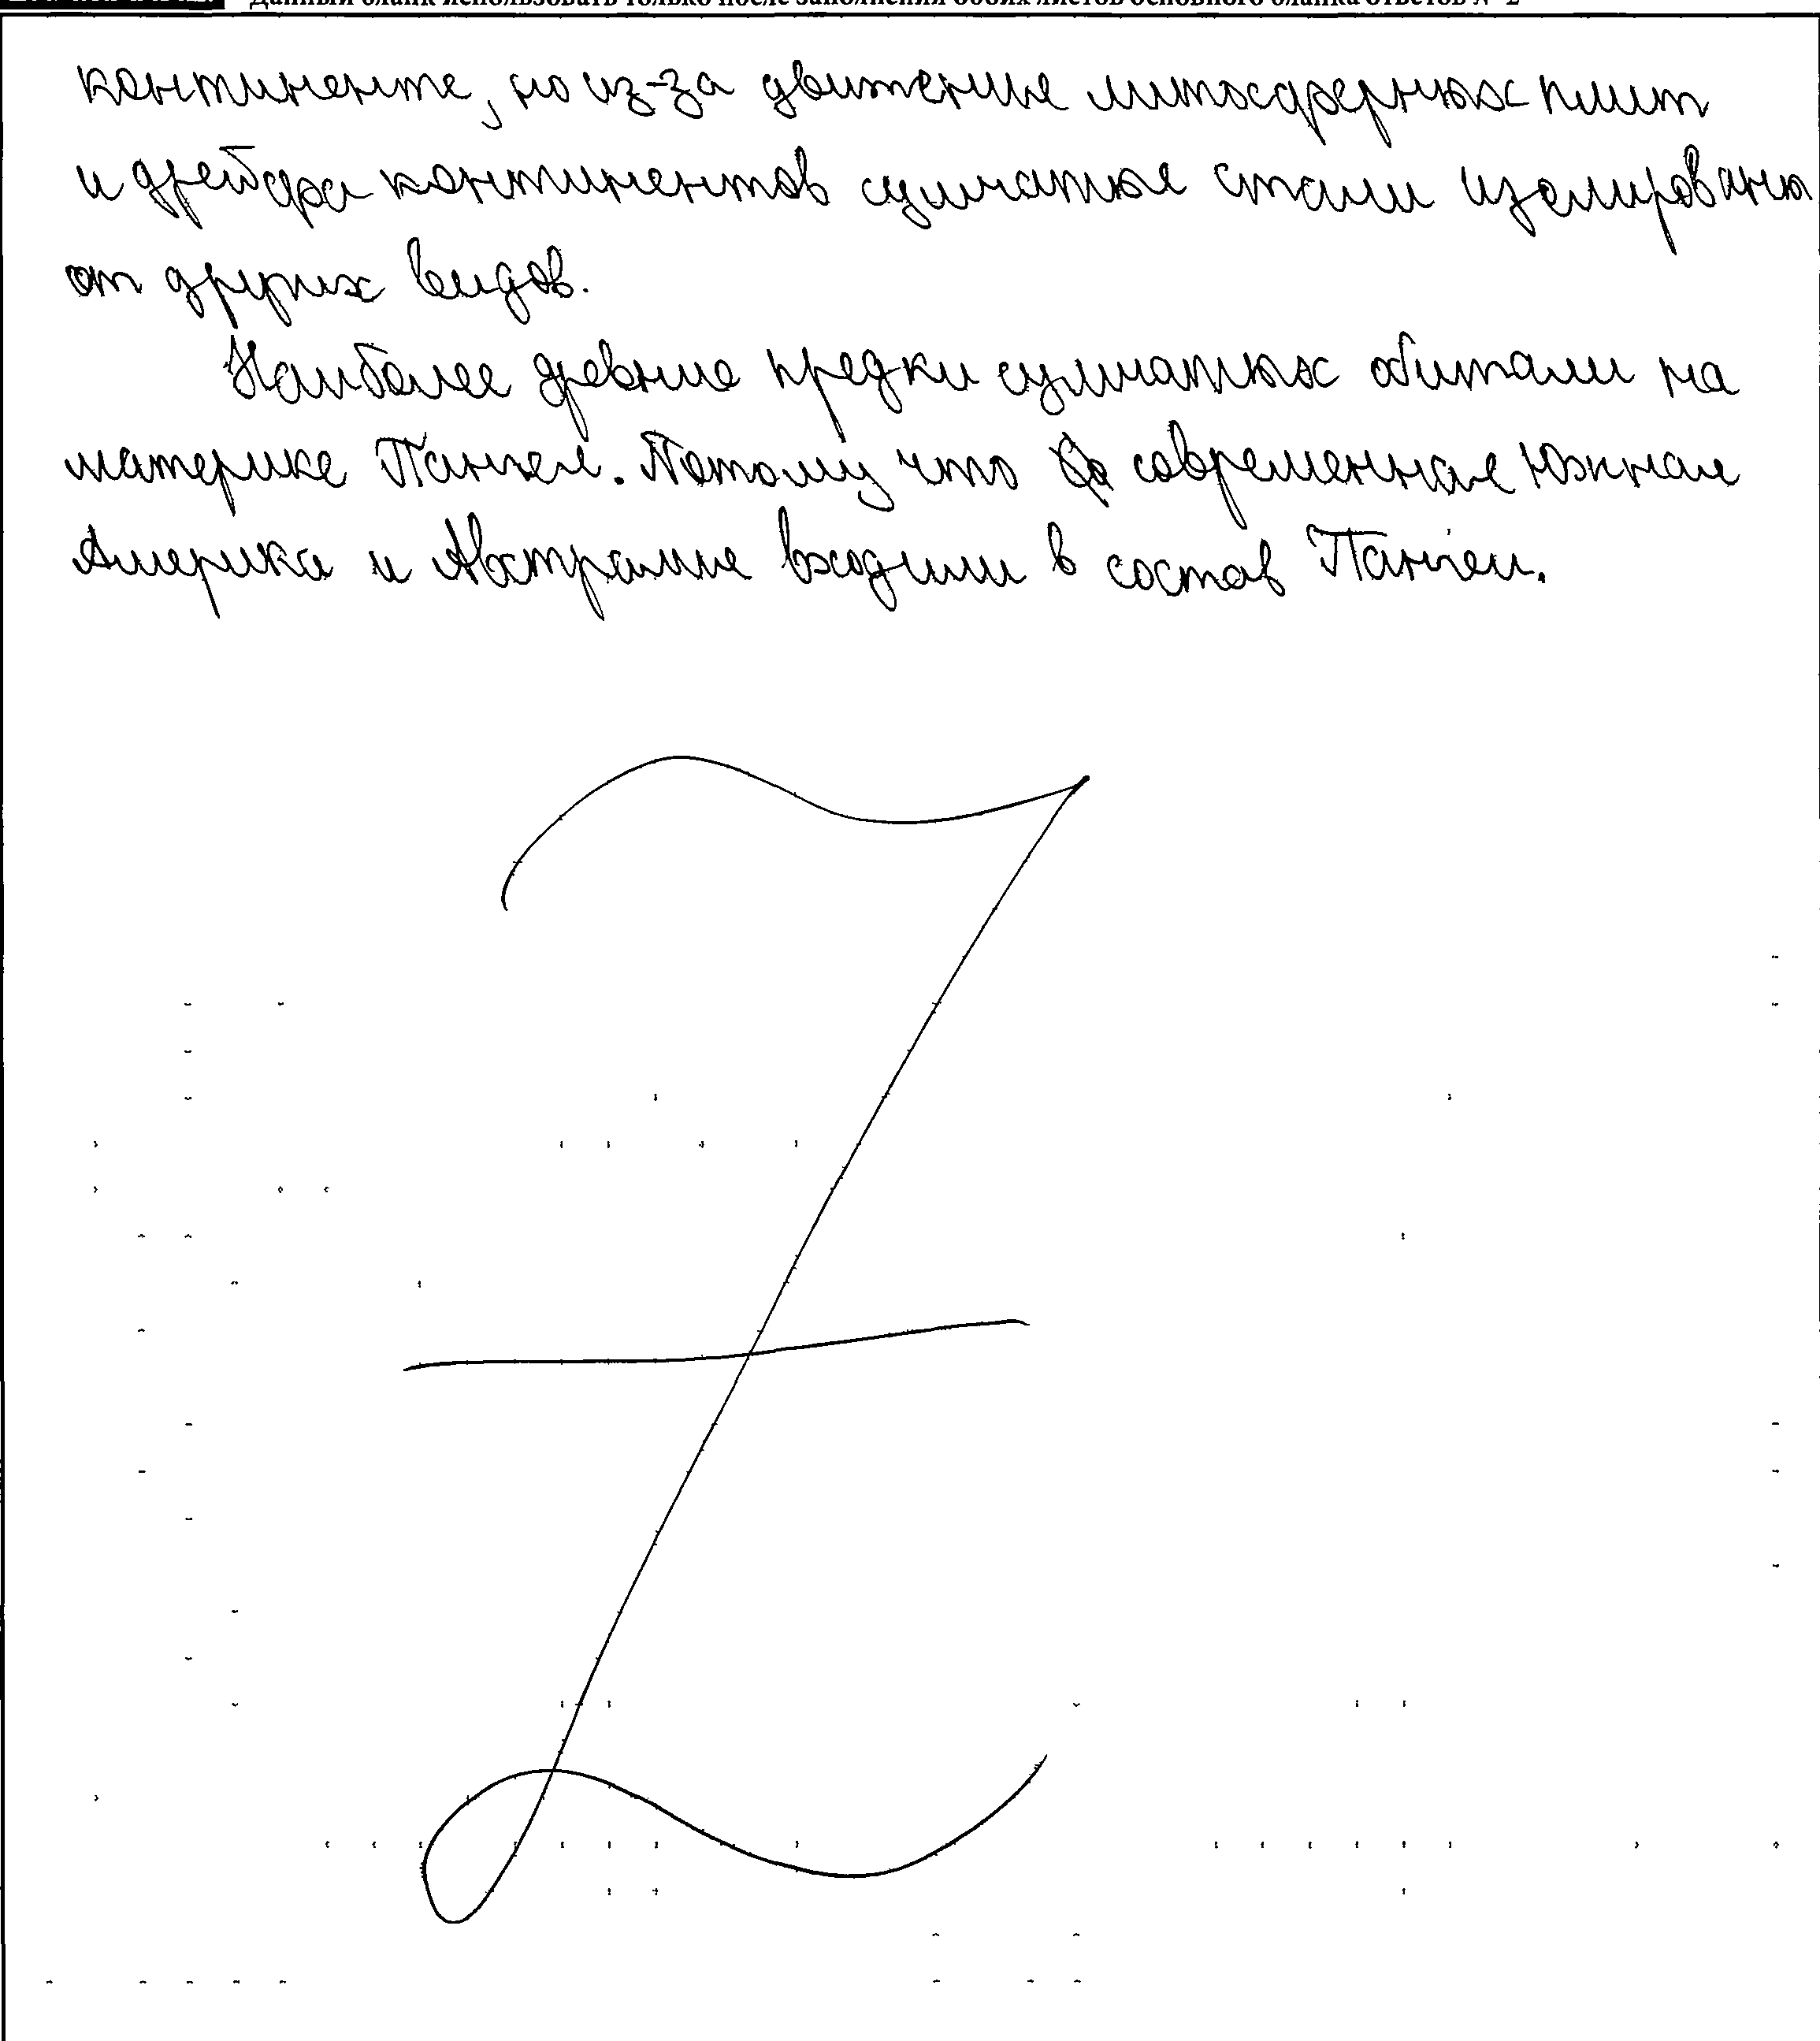 Данный бланк использовать только после заполнения обоих листов основного бланка ответов № 2
континенте, но из-за движения литосферных плит
и дрейфа континентов сумчатые стали изолированы
от других видов.
Наиболее древние предки сумчатых обитали на
материке Пангея. Потому что современная Южная
Америка и Австралия входили в состав Пангеи.